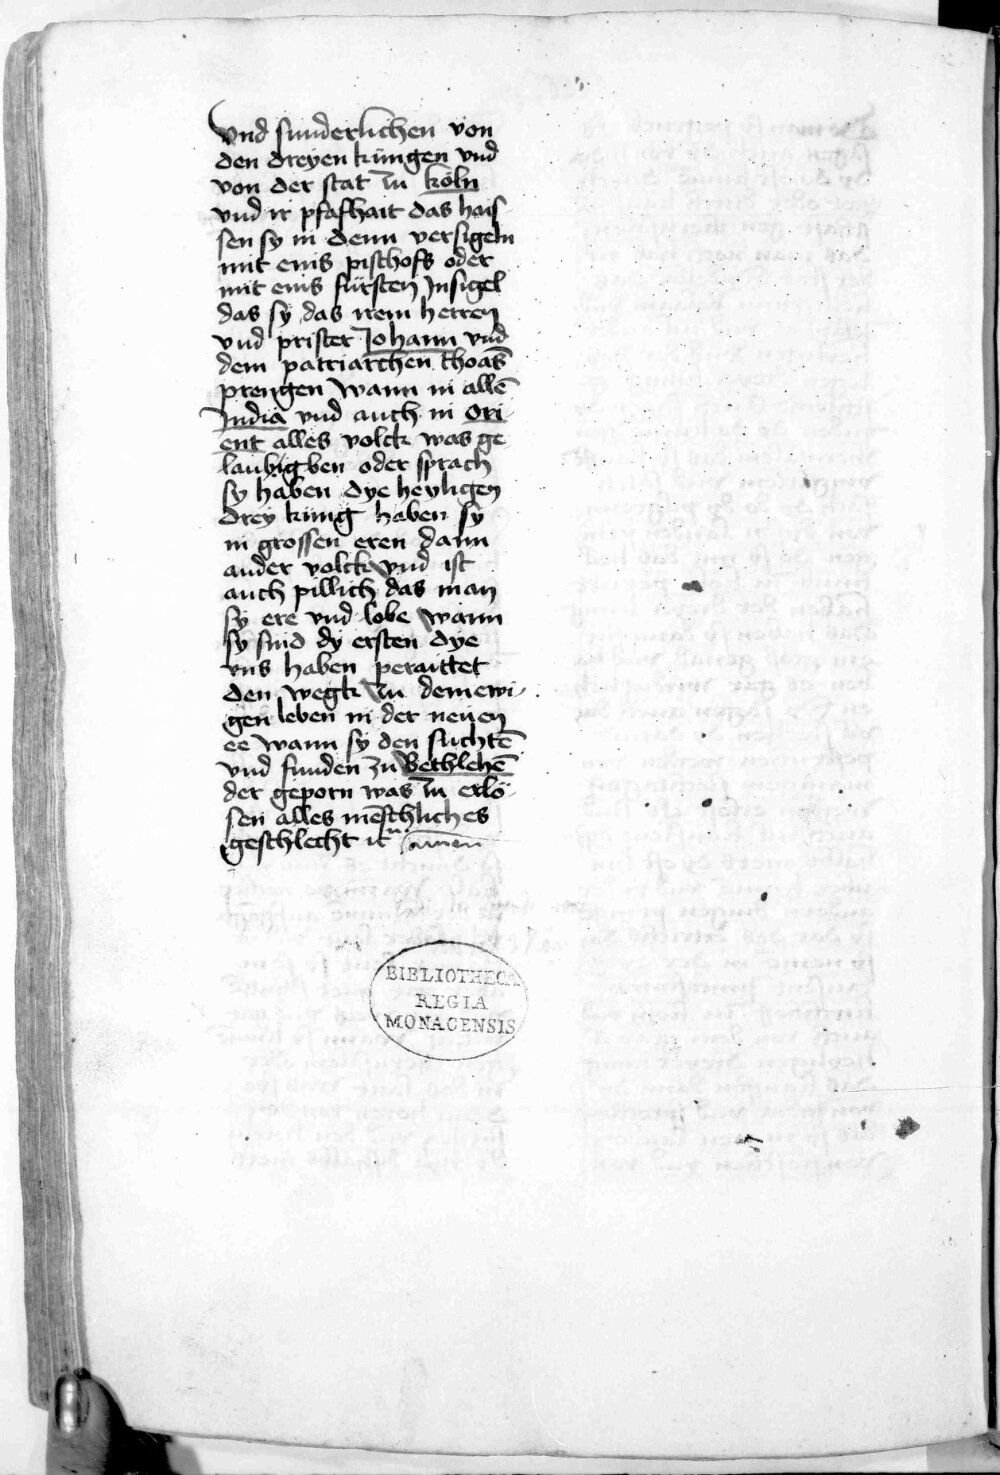 vnd sunderlichen von
den dreyen kungen vnd
von der stat zu köln
vnd ir pfafhait das hais
sen sy in denn versigeln
mit eins pischofs oder
mit eins fürsten Insigel
das sy das irem herren
vnd prister Johann vnd
dem patriarchen thoās
prengen wann in allē
India vnd auch in Ori
ent alles volck was ge
laubig ben oder sprach
sy haben dye heyligen
drey kunig haben sy
in grossen eren dann
ander volck vnd ist
auch pillich das man
sy ere vnd lobe wann
sy sind dy ersten dye
vns haben peraittet
den wegk zu dem ewi
gen leben in der neuen
ee wann sy den suchtē
vnd funden zu Bethlehē
der geporn was zu erlö
sen alles mēschliches
geschlecht amen
BIBLIOTHECA
REGIA
MONACENSIS